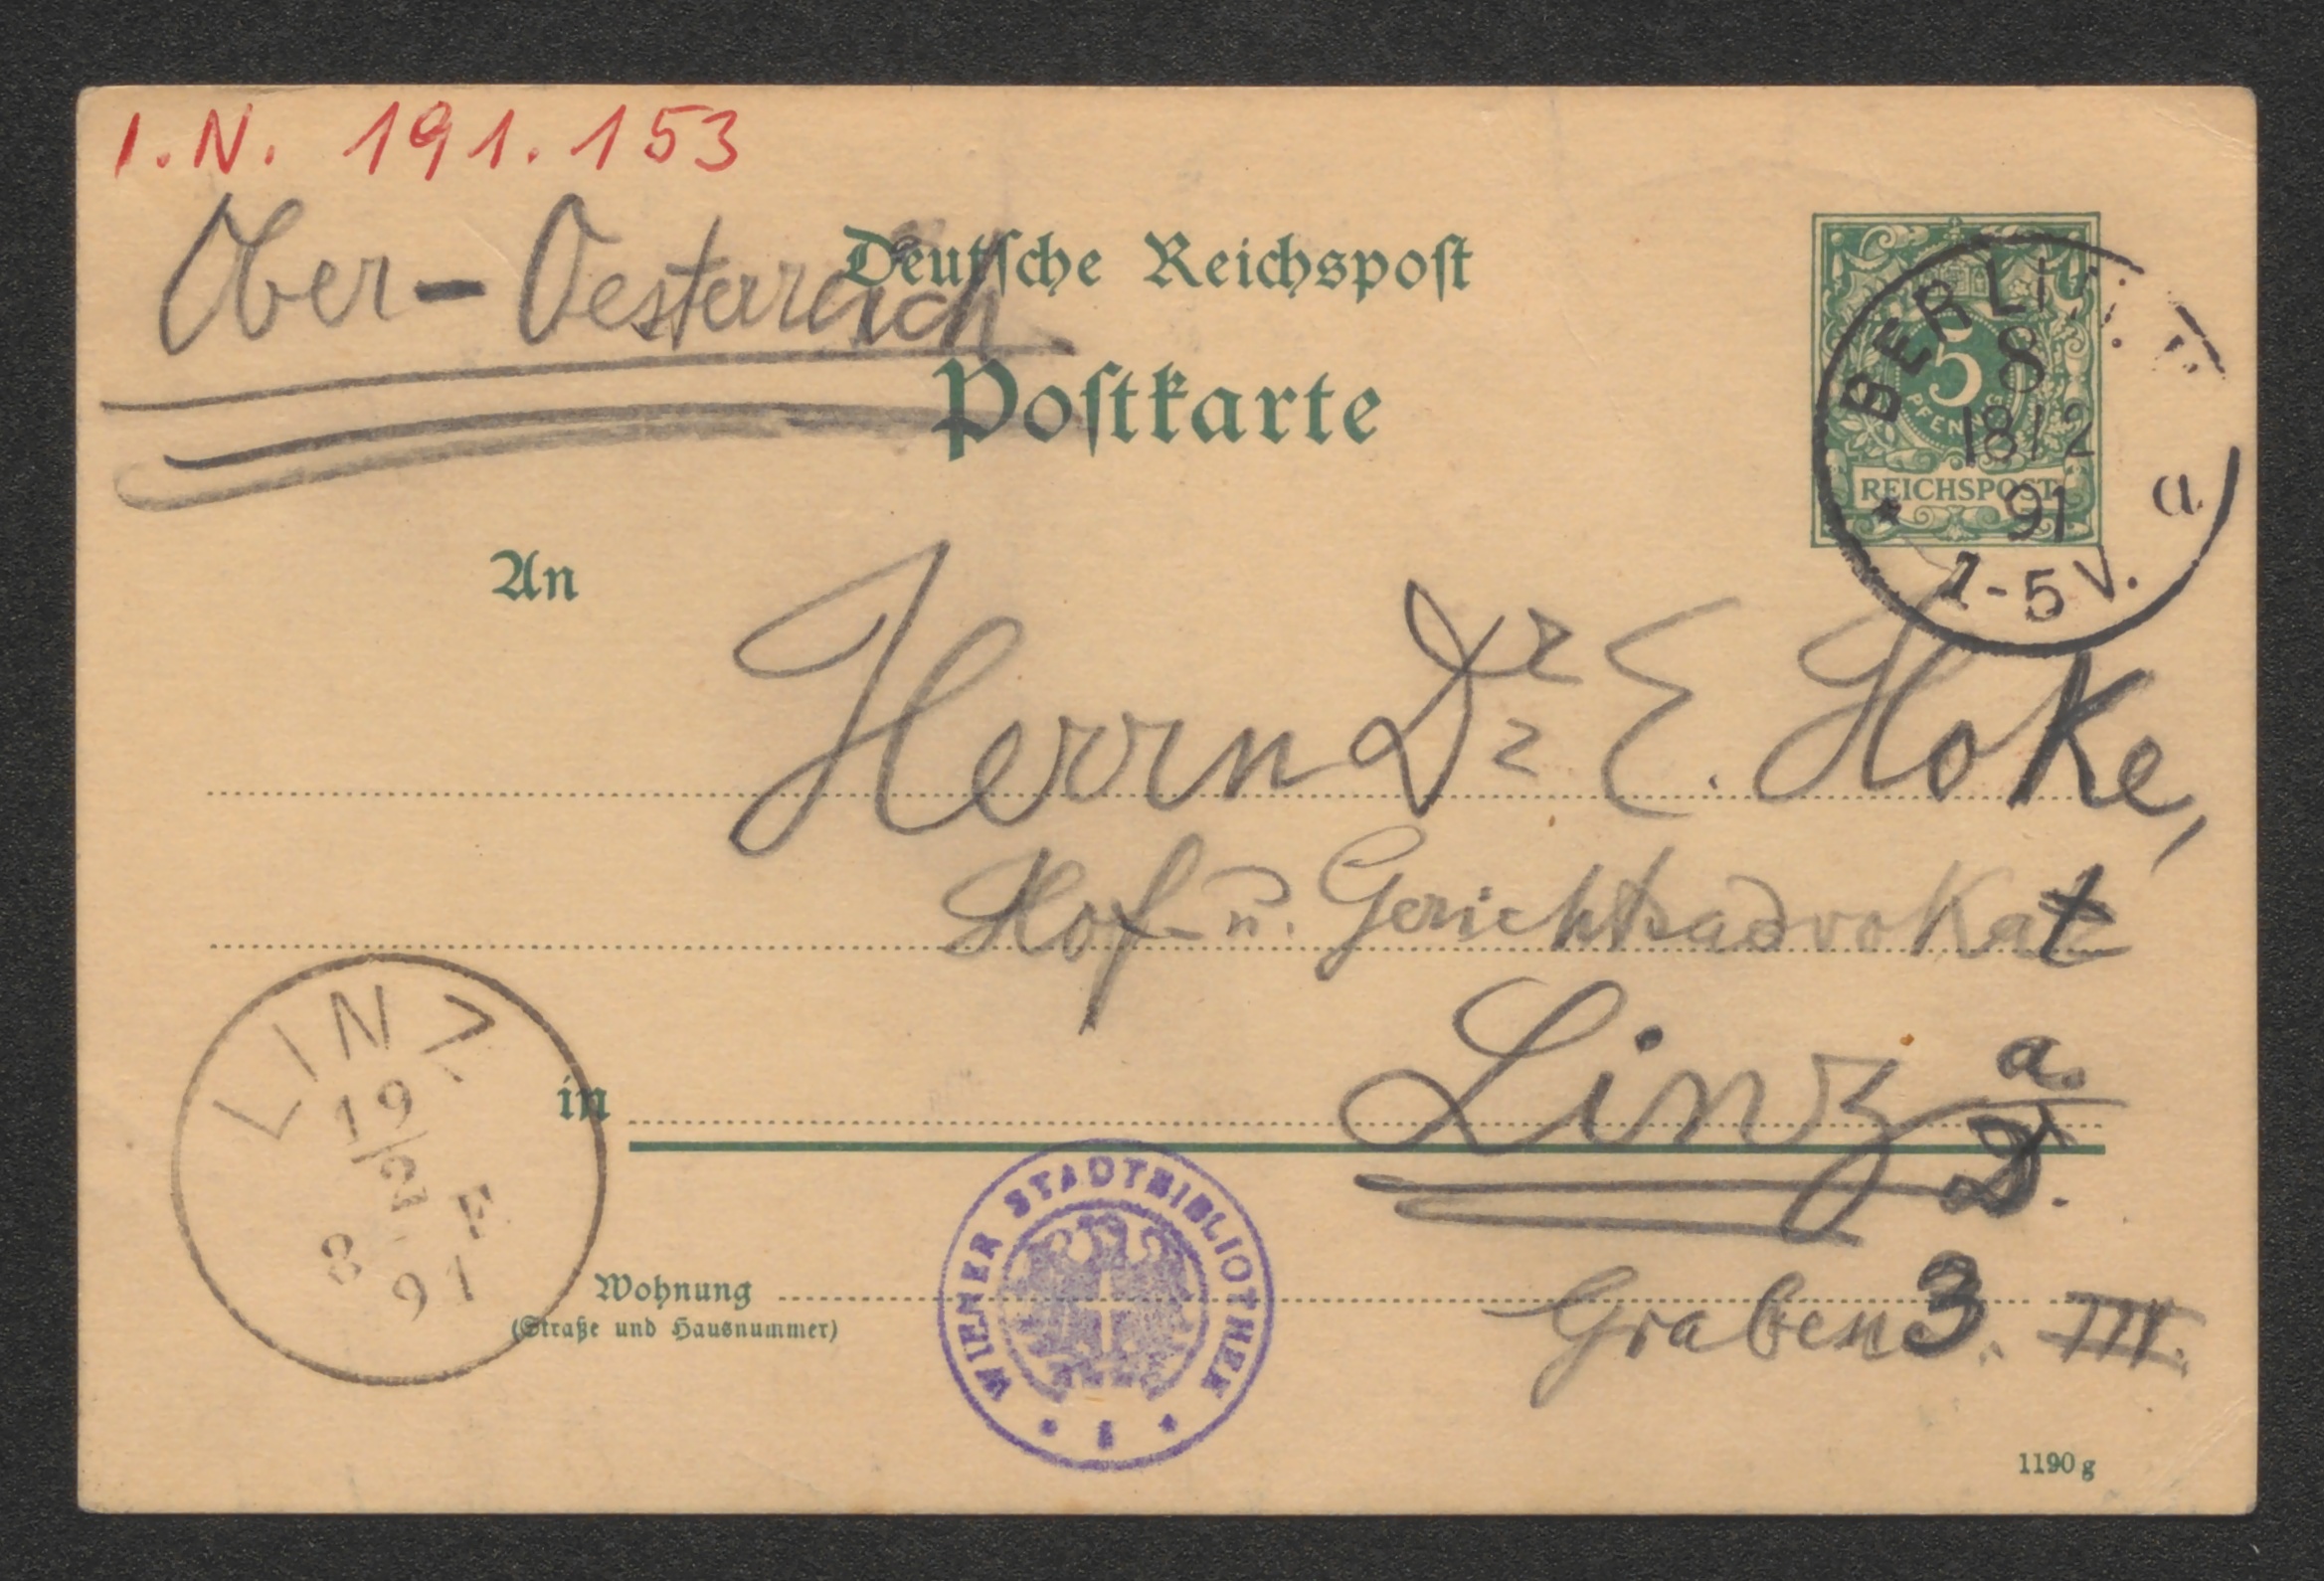 I.N. 191.153
Ober-Oesterreich
Deutsche Reichspost
Postkarte
5
PFENNIG
REICHSPOST
BERLIN
8
18/2
91
a
1-5V.
An
Herrn Dr. E. Hoke,
Hof- u. Gerichtsadvokat
in
Linz a. D.
LINZ
19
2
F
8
91
WIENER STADTBIBLIOTHEK
Wohnung
(Straße und Hausnummer)
Graben 3. III.
1190 g